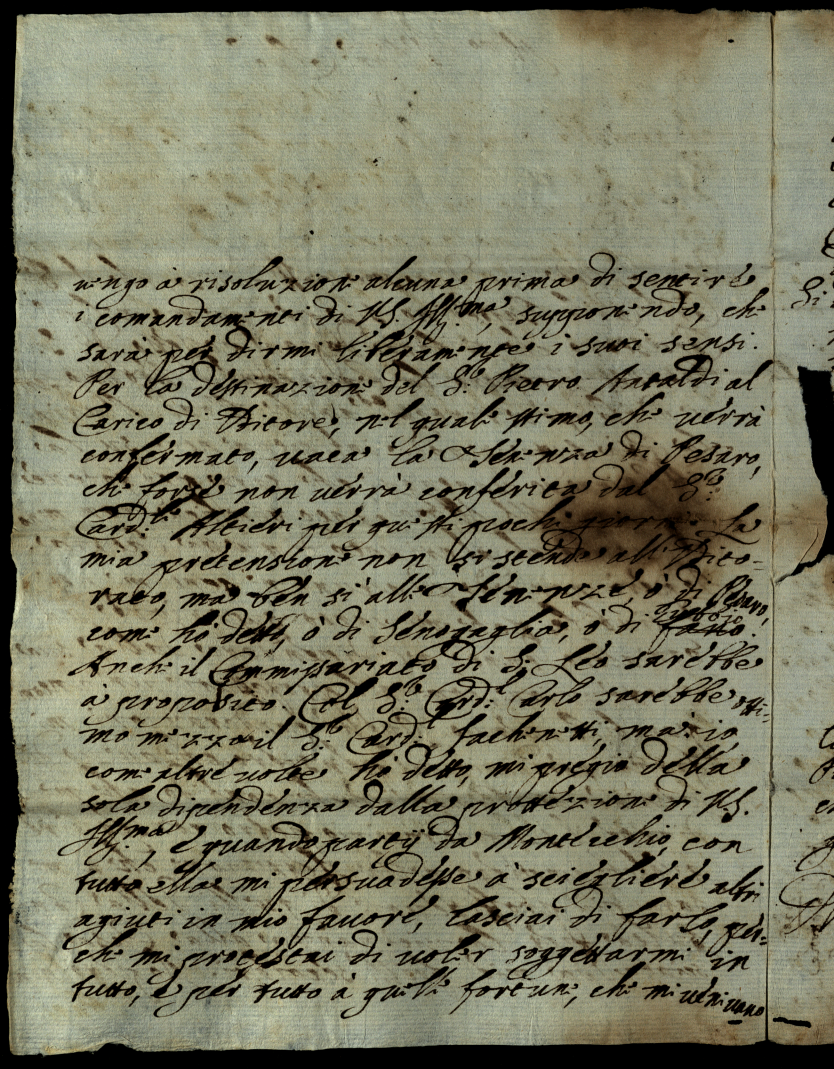 uengo à risoluzione alcuna prima di sentire
i comandamenti di VS. Ill.ma, supponendo, che
sarà per dirmi liberamente i suoi sensi.
Per la destinazione del S.r Pietro Antaldi al
Carico di Vditore, nel quale stimo, che uerrà
confermato, uaca la Tenenza di Pesaro,
che forse non uerrà conferita dal S.r
Card.le Altieri per questi pochi giorni. La
mia pretensione non si stende all'Vdito-
rato, ma ben si alle Tenenze, ò di Pesaro,
come hò detto, ò di Senogaglia, ò di
Anche il Commissariato di S. Leo sarebbe
à proposito. Col S.r Card.l Carlo sarebbe otti-
mo mezzo il S.r Card.l Fachenetti, mà io,
come altre uolte hò detto, mi pregio della
sola dipendenza dalla protezione di VS.
Ill.ma, e quando partij da Montecchio, con
tutto ella mi persuadesse à sciegliere altri
agiuti in mio fauore, lasciai di farlo, per-
che mi protestai di uoler soggettarmi in
tutto, e per tutto à quelle fortune, che mi ueniuano